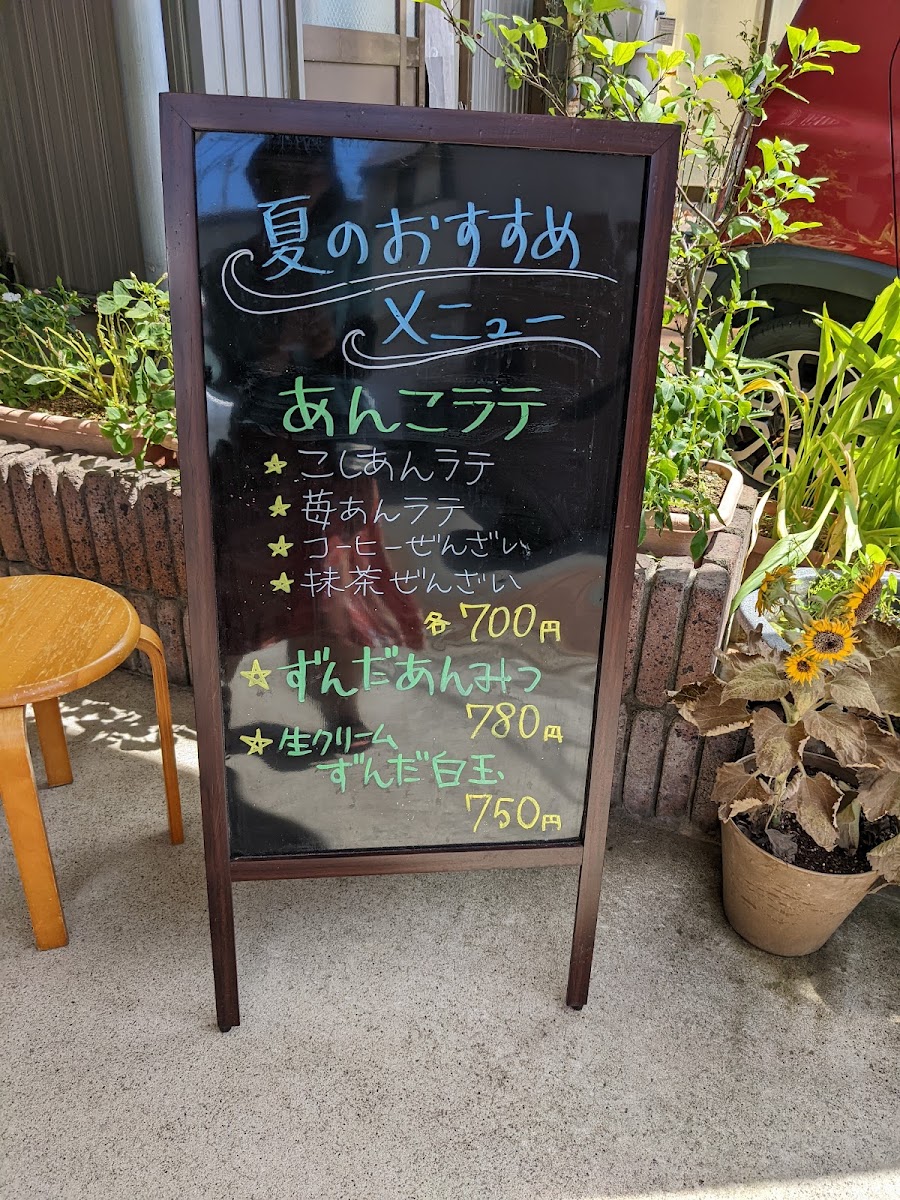 夏のおすすめ
メニュー
あんこラテ
☆こしあんラテ
☆苺あんラテ
☆コーヒーぜんざい
☆抹茶ぜんざい
各700円
☆ずんだあんみつ
780円
☆生クリーム
ずんだ白玉
750円